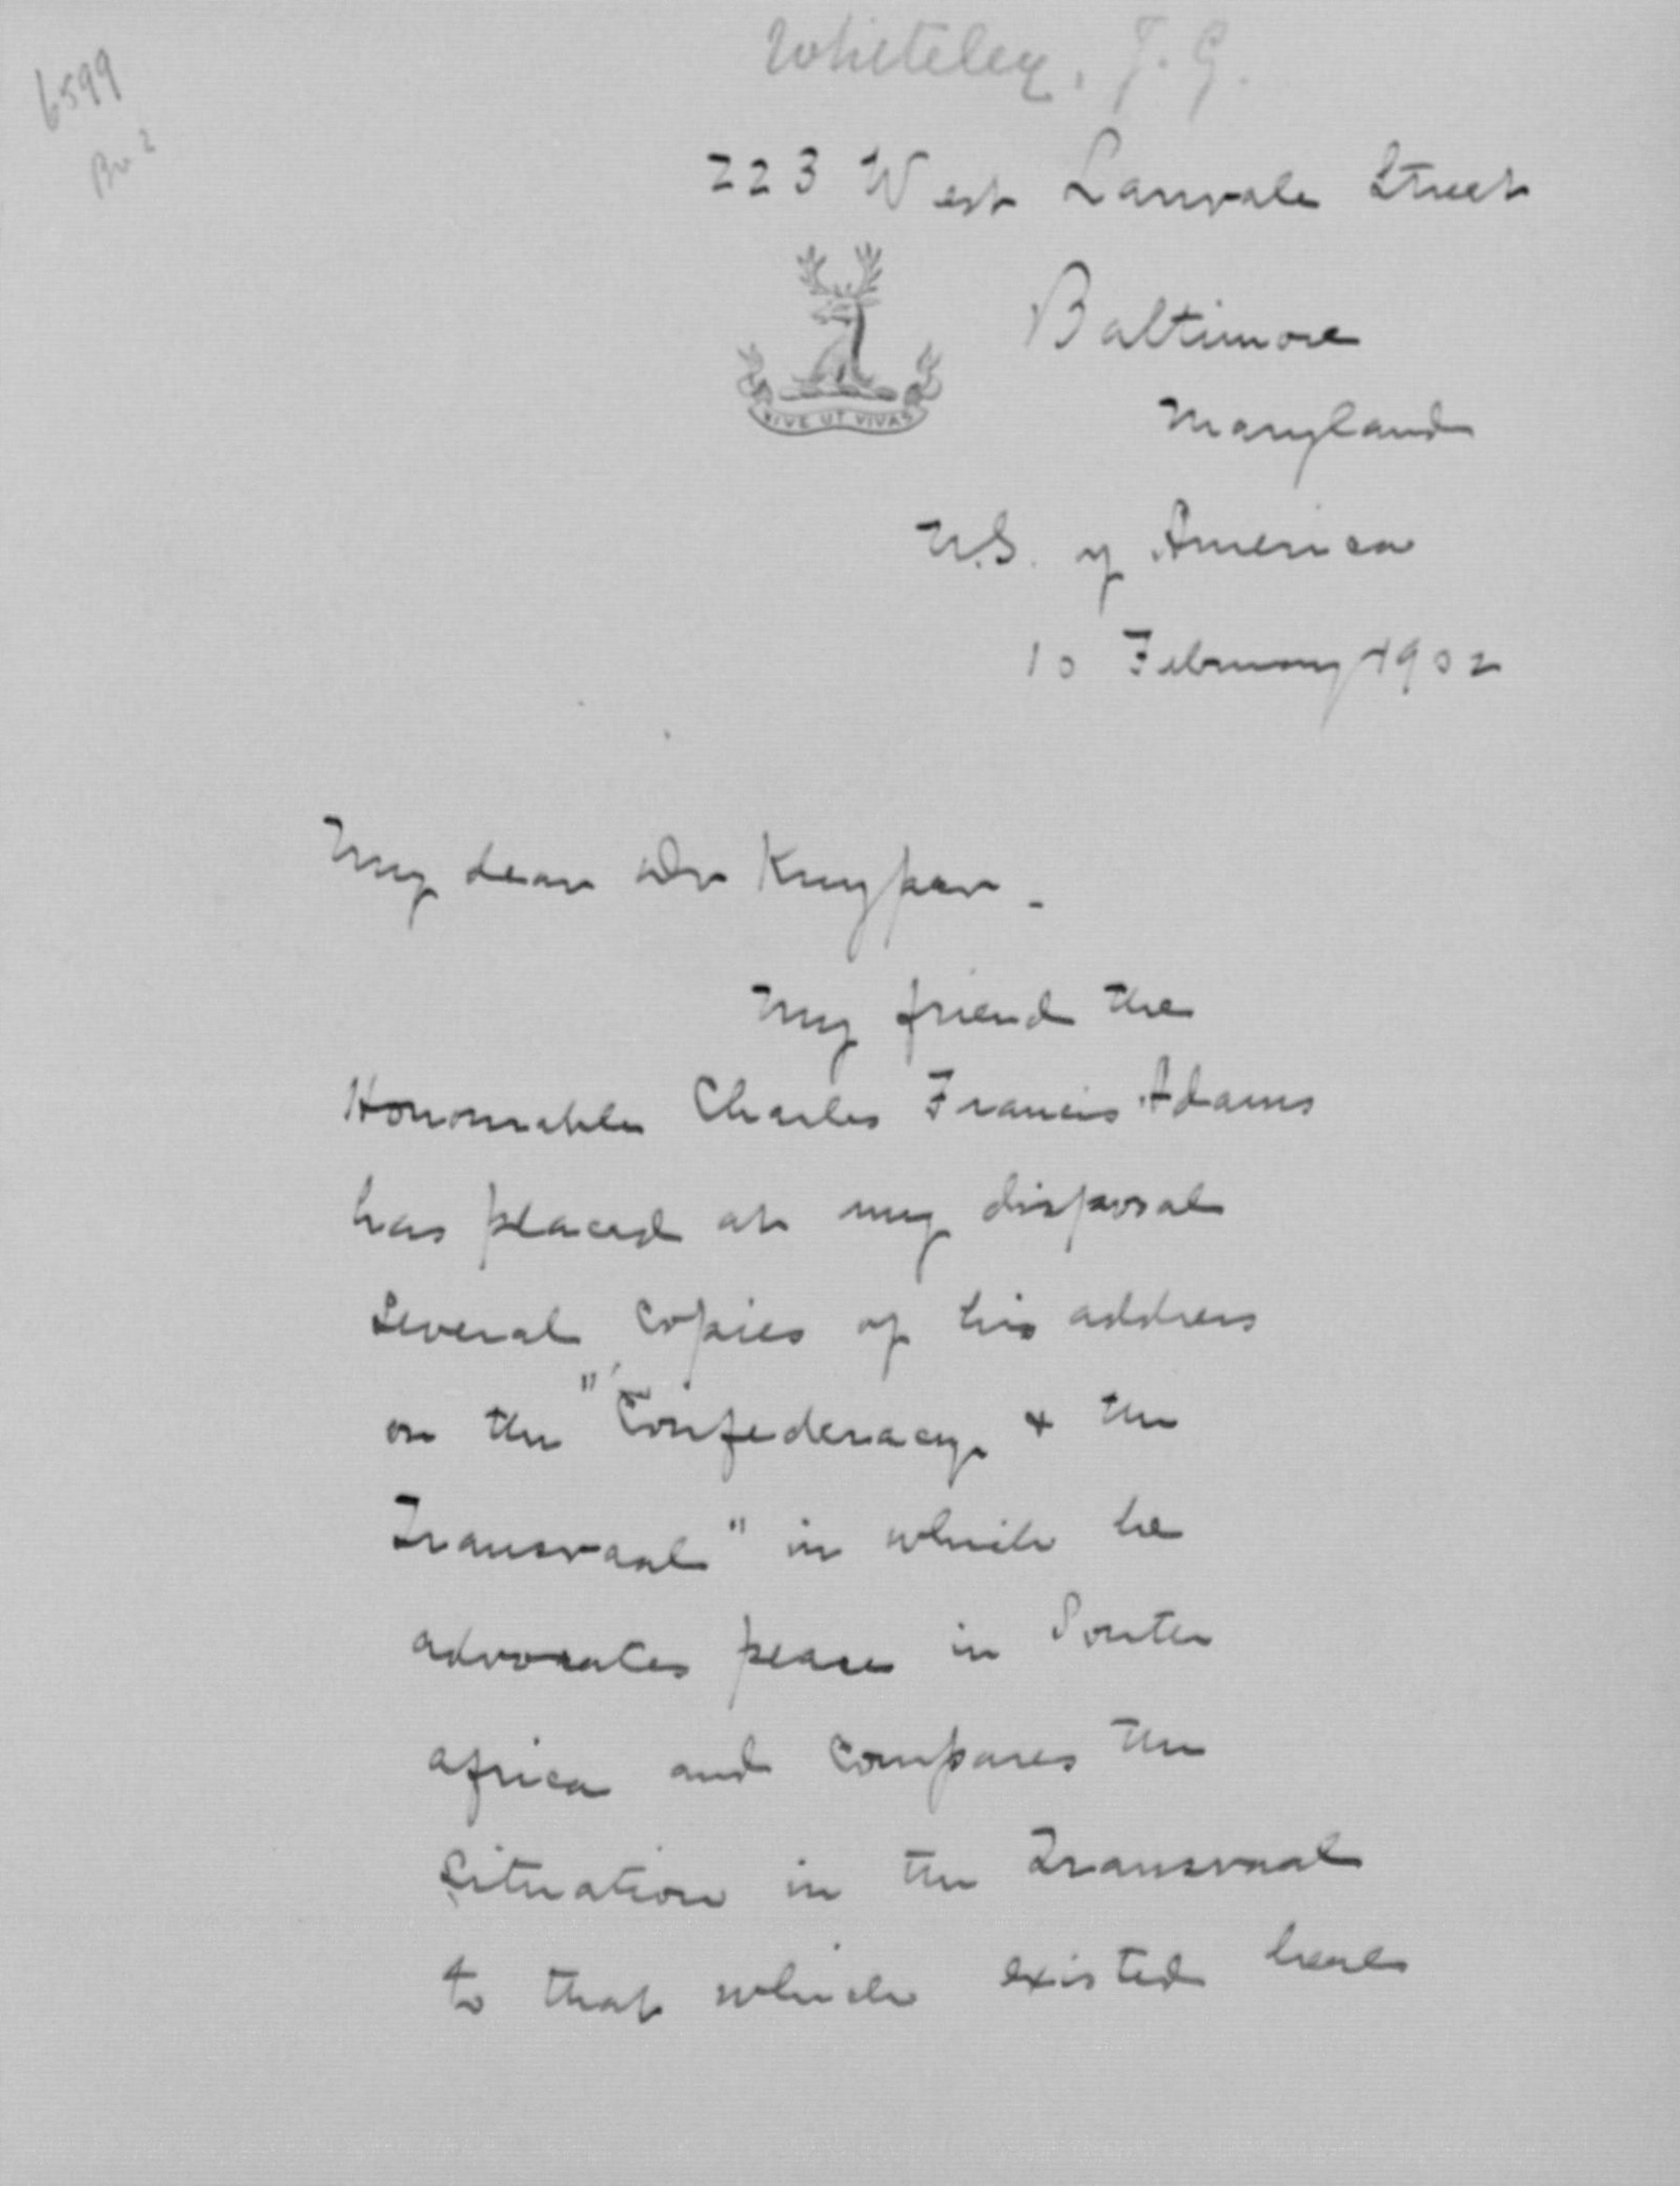 Whiteley, J. G.
6599
Br 2
223 West Lanvale Street
Baltimore
VIVE UT VIVAS
Maryland
U.S. of America
10 February 1902
My dear Dr Kuyper -
My friend the
Honourable Charles Francis Adams
has placed at my disposal
several copies of his address
on the "Confederacy & the
Transvaal" in which he
advocates peace in South
africa and compares the
situation in the Transvaal
to that which existed here